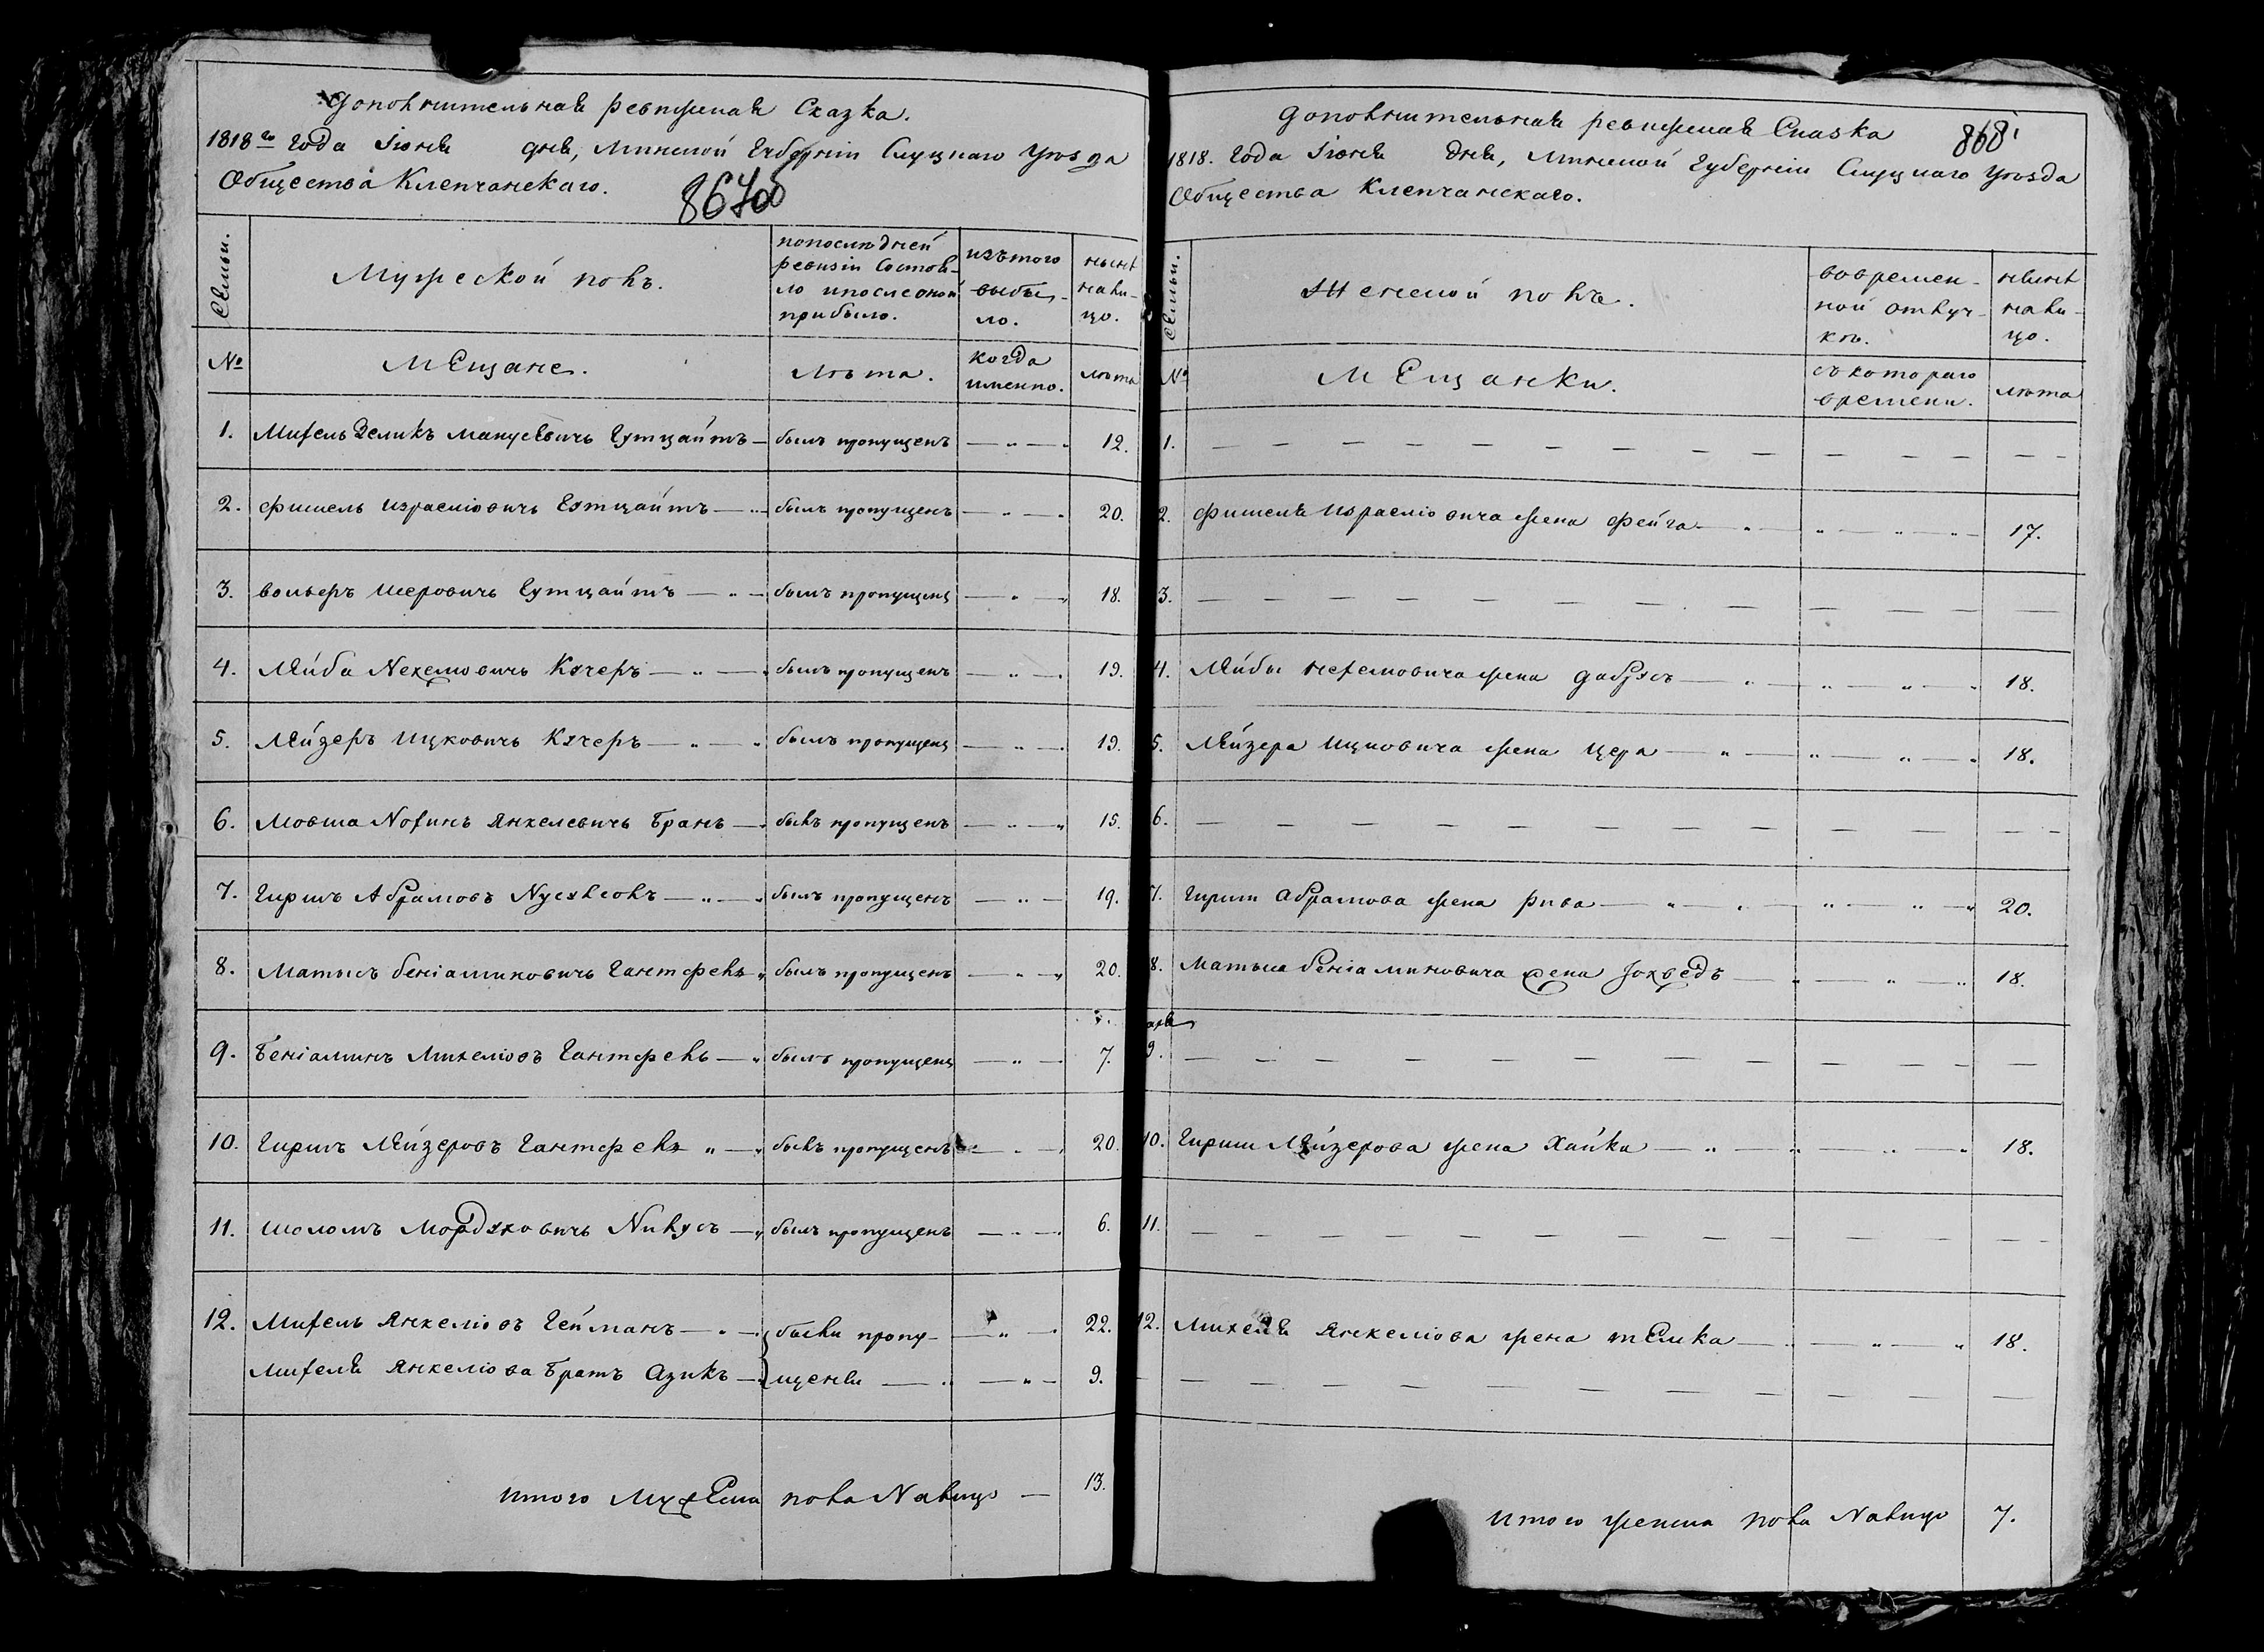 Дополнительная ревижская Сказка.
1818го Года Іюня дня, Минской Губерніи Слуцкаго Уѣзда
Общества Клепчанскаго.
Семьи.
Мужеской полъ.
попослѣдней ревизіи состоя-
ло ипослеоной прибыло.
изътого выбы-
ло.
нынѣ нали-
цо.
№
МЕщане.
Лѣта.
когда именно.
лѣта
1. Михель Зеликъ Мануссовичь Гутцайтъ — былъ пропущенъ — 12.
2. Фишель Израеліовичь Гутцайтъ — былъ пропущенъ — 20.
3. Вольфъ Шеровичь Гутцайтъ — былъ пропущенъ — 18.
4. Лейба Нехемовичь Кучеръ — былъ пропущенъ — 19.
5. Лейзеръ Ицковичь Кучеръ — былъ пропущенъ — 19.
6. Мовша Нохимъ Янкелевичь Бранъ — былъ пропущенъ — 15.
7. Гиршъ Абрамовъ — былъ пропущенъ — 19.
8. Матысъ Беніаминовичь Гантфелъ — былъ пропущенъ — 20.
9. Беніаминъ Михеліовъ Гантфелъ — былъ пропущенъ — 7.
10. Гиршъ Лейзеровъ Гантфелъ — былъ пропущенъ — 20.
11. Шоломъ Мордуховичь — былъ пропущенъ — 6.
12. Михель Янкеліовъ Гейманъ — были пропу- — 22.
Михеля Янкеліова Братъ Азикъ — щены — 9.
итого МужЕска пола Налицо — 13.
868
Дополнительная ревижская Сказка
1818. Года Іюня Дня, Минской Губерніи Слуцкаго Уѣзда
Общества Клепчанскаго.
Семьи.
Женской полъ.
вовремен-
ной отлуч-
кѣ.
нынѣ
нали-
цо.
№
МЕщанки.
съкотораго
времени.
лѣта
1. —
2. Фишеля Израеліовича жена Фейга — 17.
3. —
4. Лейбы Нехемовича жена — 18.
5. Лейзера Ицковича жена Цера — 18.
6. —
7. Гирши Абрамова жена Рива — 20.
8. Матыса Беніаминовича жена Іохведъ — 18.
9. —
10. Гирши Лейзерова жена Хайка — 18.
11. —
12. Михеля Янкеліова жена — 18.
—
итого женска пола Налицо 7.